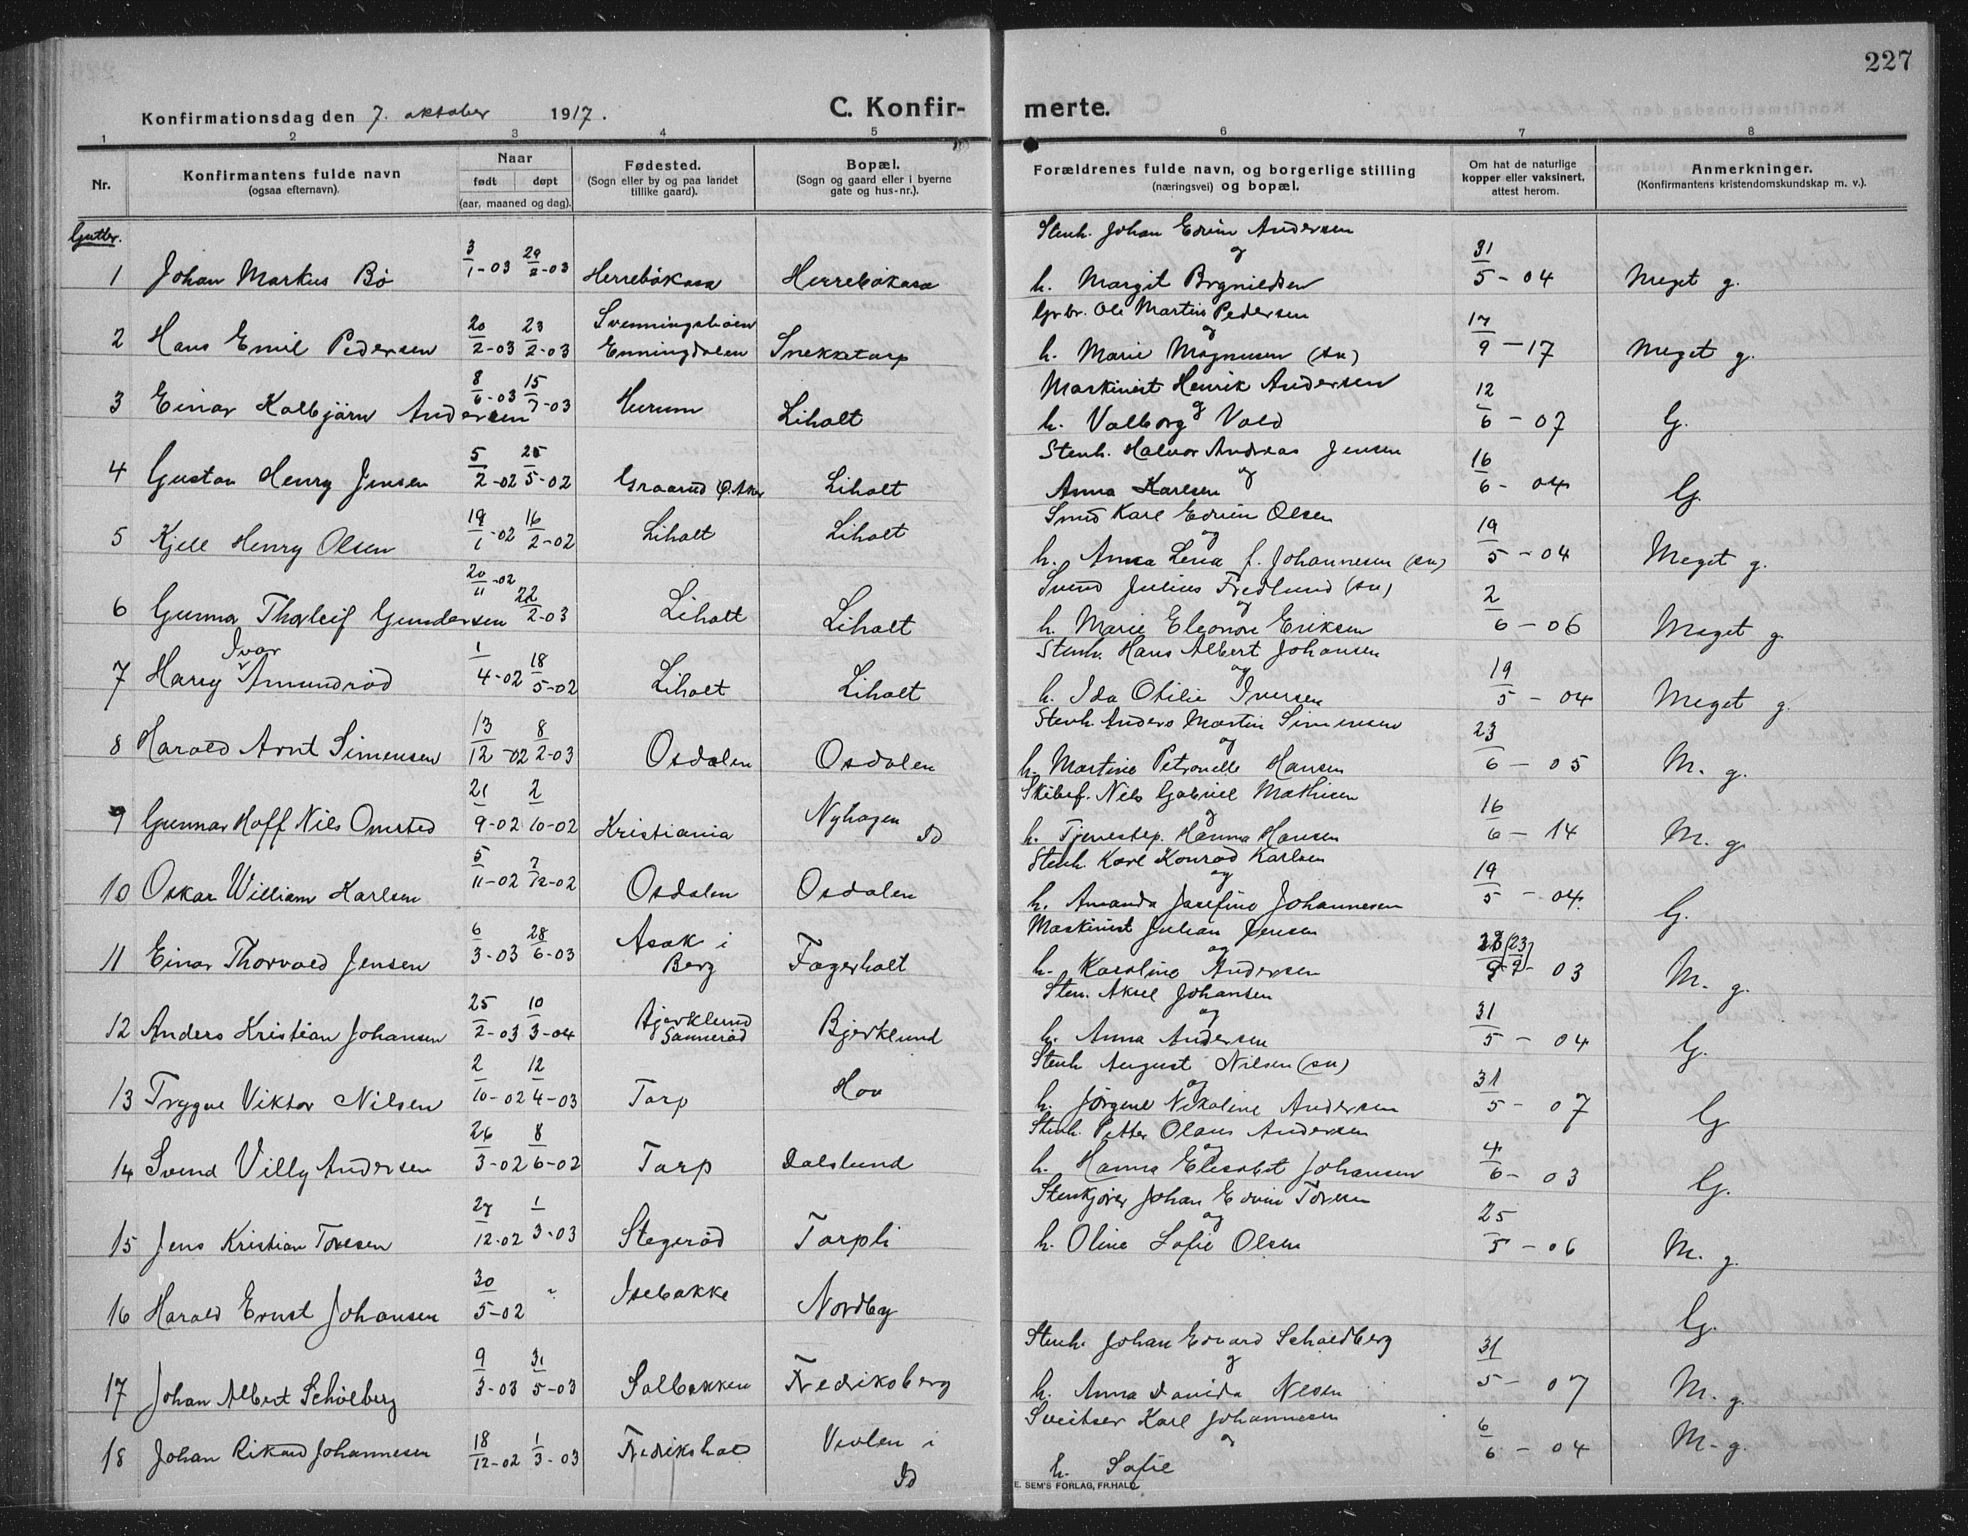 227
Konfirmationsdag den 7. oktober 1917. C. Konfirmerte.
1 2 3 4 5 6 7 8
Nr. Konfirmantens fulde navn (ogsaa efternavn). Naar født døpt (aar, maaned og dag). Fødested. (Sogn eller by og paa landet tillike gaard). Bopæl. (Sogn og gaard eller i byerne gate og hus-nr.). Forældrenes fulde navn, og borgerlige stilling (næringsvei) og bopæl. Om hat de naturlige kopper eller vaksinert, attest herom. Anmerkninger. (Konfirmantens kristendomskundskap m. v.).
Gutter.
Stenh. Johan Edvin Andersen
og
1 Johan Markus Bø 3/1-03 29/2-03 Herrebøkasa Herrebøkasa h. Margit Brynildsen 31/5-04 Meget g.
Svenningsbøen Gr.br. Ole Martin Pedersen
og
2 Hans Emil Pedersen 20/2-03 23/2-03 Enningdalen Snekketorp h. Marie Magnusen (sv) 17/9-17 Meget g.
Maskinist Henrik Andersen
og
3 Einar Kolbjørn Andersen 8/6-03 15/7-03 Hurum Liholt h. Valborg Vold 12/6-07 G.
Stenh. Halvor Andreas Jensen
og
4 Gustav Henry Jensen 5/2-02 25/5-02 Graarud Ø. Aker Liholt Anna Karlsen 16/6-04 G.
Smed Karl Edvin Olsen
og
5 Kjell Henry Olsen 19/1-02 16/2-02 Liholt Liholt h. Anna Lena f. Johannesen (sv) 19/5-04 Meget g.
Svend Julius Fredlund (sv)
og
6 Gunnar Thorleif Gundersen 20/11-02 22/2-03 Liholt Liholt h. Marie Eleonore Eriksen 2/6-06 Meget g.
Ivar Stenh. Hans Albert Johansen
og
7 Harry Amundrød 1/4-02 18/5-02 Liholt Liholt h. Ida Otilie Iversen 19/5-04 Meget g.
Stenh. Anders Martin Simensen
og
8 Harald Arnt Simensen 13/12-02 8/2-03 Osdalen Osdalen h. Martine Petronelle Hansen 23/6-05 M. g.
Skibsf. Nils Gabriel Mathisen
og
9 Gunnar Hoff Nils Omsted 21/9-02 2/10-02 Kristiania Nyhagen Id h. Tjenestep. Hanna Hansen 16/6-14 M. g.
Stenh. Karl Konrad Karlsen
og
10 Oskar William Karlsen 5/11-02 7/12-02 Osdalen Osdalen h. Amanda Josefine Johannesen 19/5-04. G.
Maskinist Julian Jensen
og
11 Einar Thorvald Jensen 6/3-03 28/6-03 Asak i Berg Fagerholt h. Karoline Andersen (23/9)-03 M. g.
Sten. Aksel Johansen
og
12 Anders Kristian Johansen 25/2-03 10/3-04 Bjerklund Sannerød Bjerklund h. Anna Andersen 31/5-04 G.
Stenh August Nilsen (sv)
og
13 Trygve Viktor Nilsen 2/10-02 12/4-03 Torp Hov h. Jørgine Nikoline Andersen 31/5-07 G
Stenh. Petter Olaus Andersen
og
14 Svend Villy Andersen 26/3-02 8/6-02 Torp Dalslund h. Hanna Elisabet Johansen 4/6-03 G.
Stenkjører Johan Edvin Toresen
og
15 Jens Kristian Toresen 27/12-02 1/3-03 Stegerød Torpli h. Oline Sofie Olsen 25/5-06 M. g.
16 Harald Ernst Johansen 30/5-02 " Isebakke Nordby G.
Stenh. Johan Edvard Scholdberg
og
17 Johan Albert Schølberg 9/3-03 31/5-03 Solbakken Fredriksberg h. Anna Davida Nilsen 31/5-07 M. g.
Sveitser Karl Johannesen
og
18 Johan Rikard Johannesen 18/12-02 1/3-03 Fredrikshald Veden i Id h. Sofie 6/6-04 M. g.
E. SEM'S FORLAG, FR.HALD